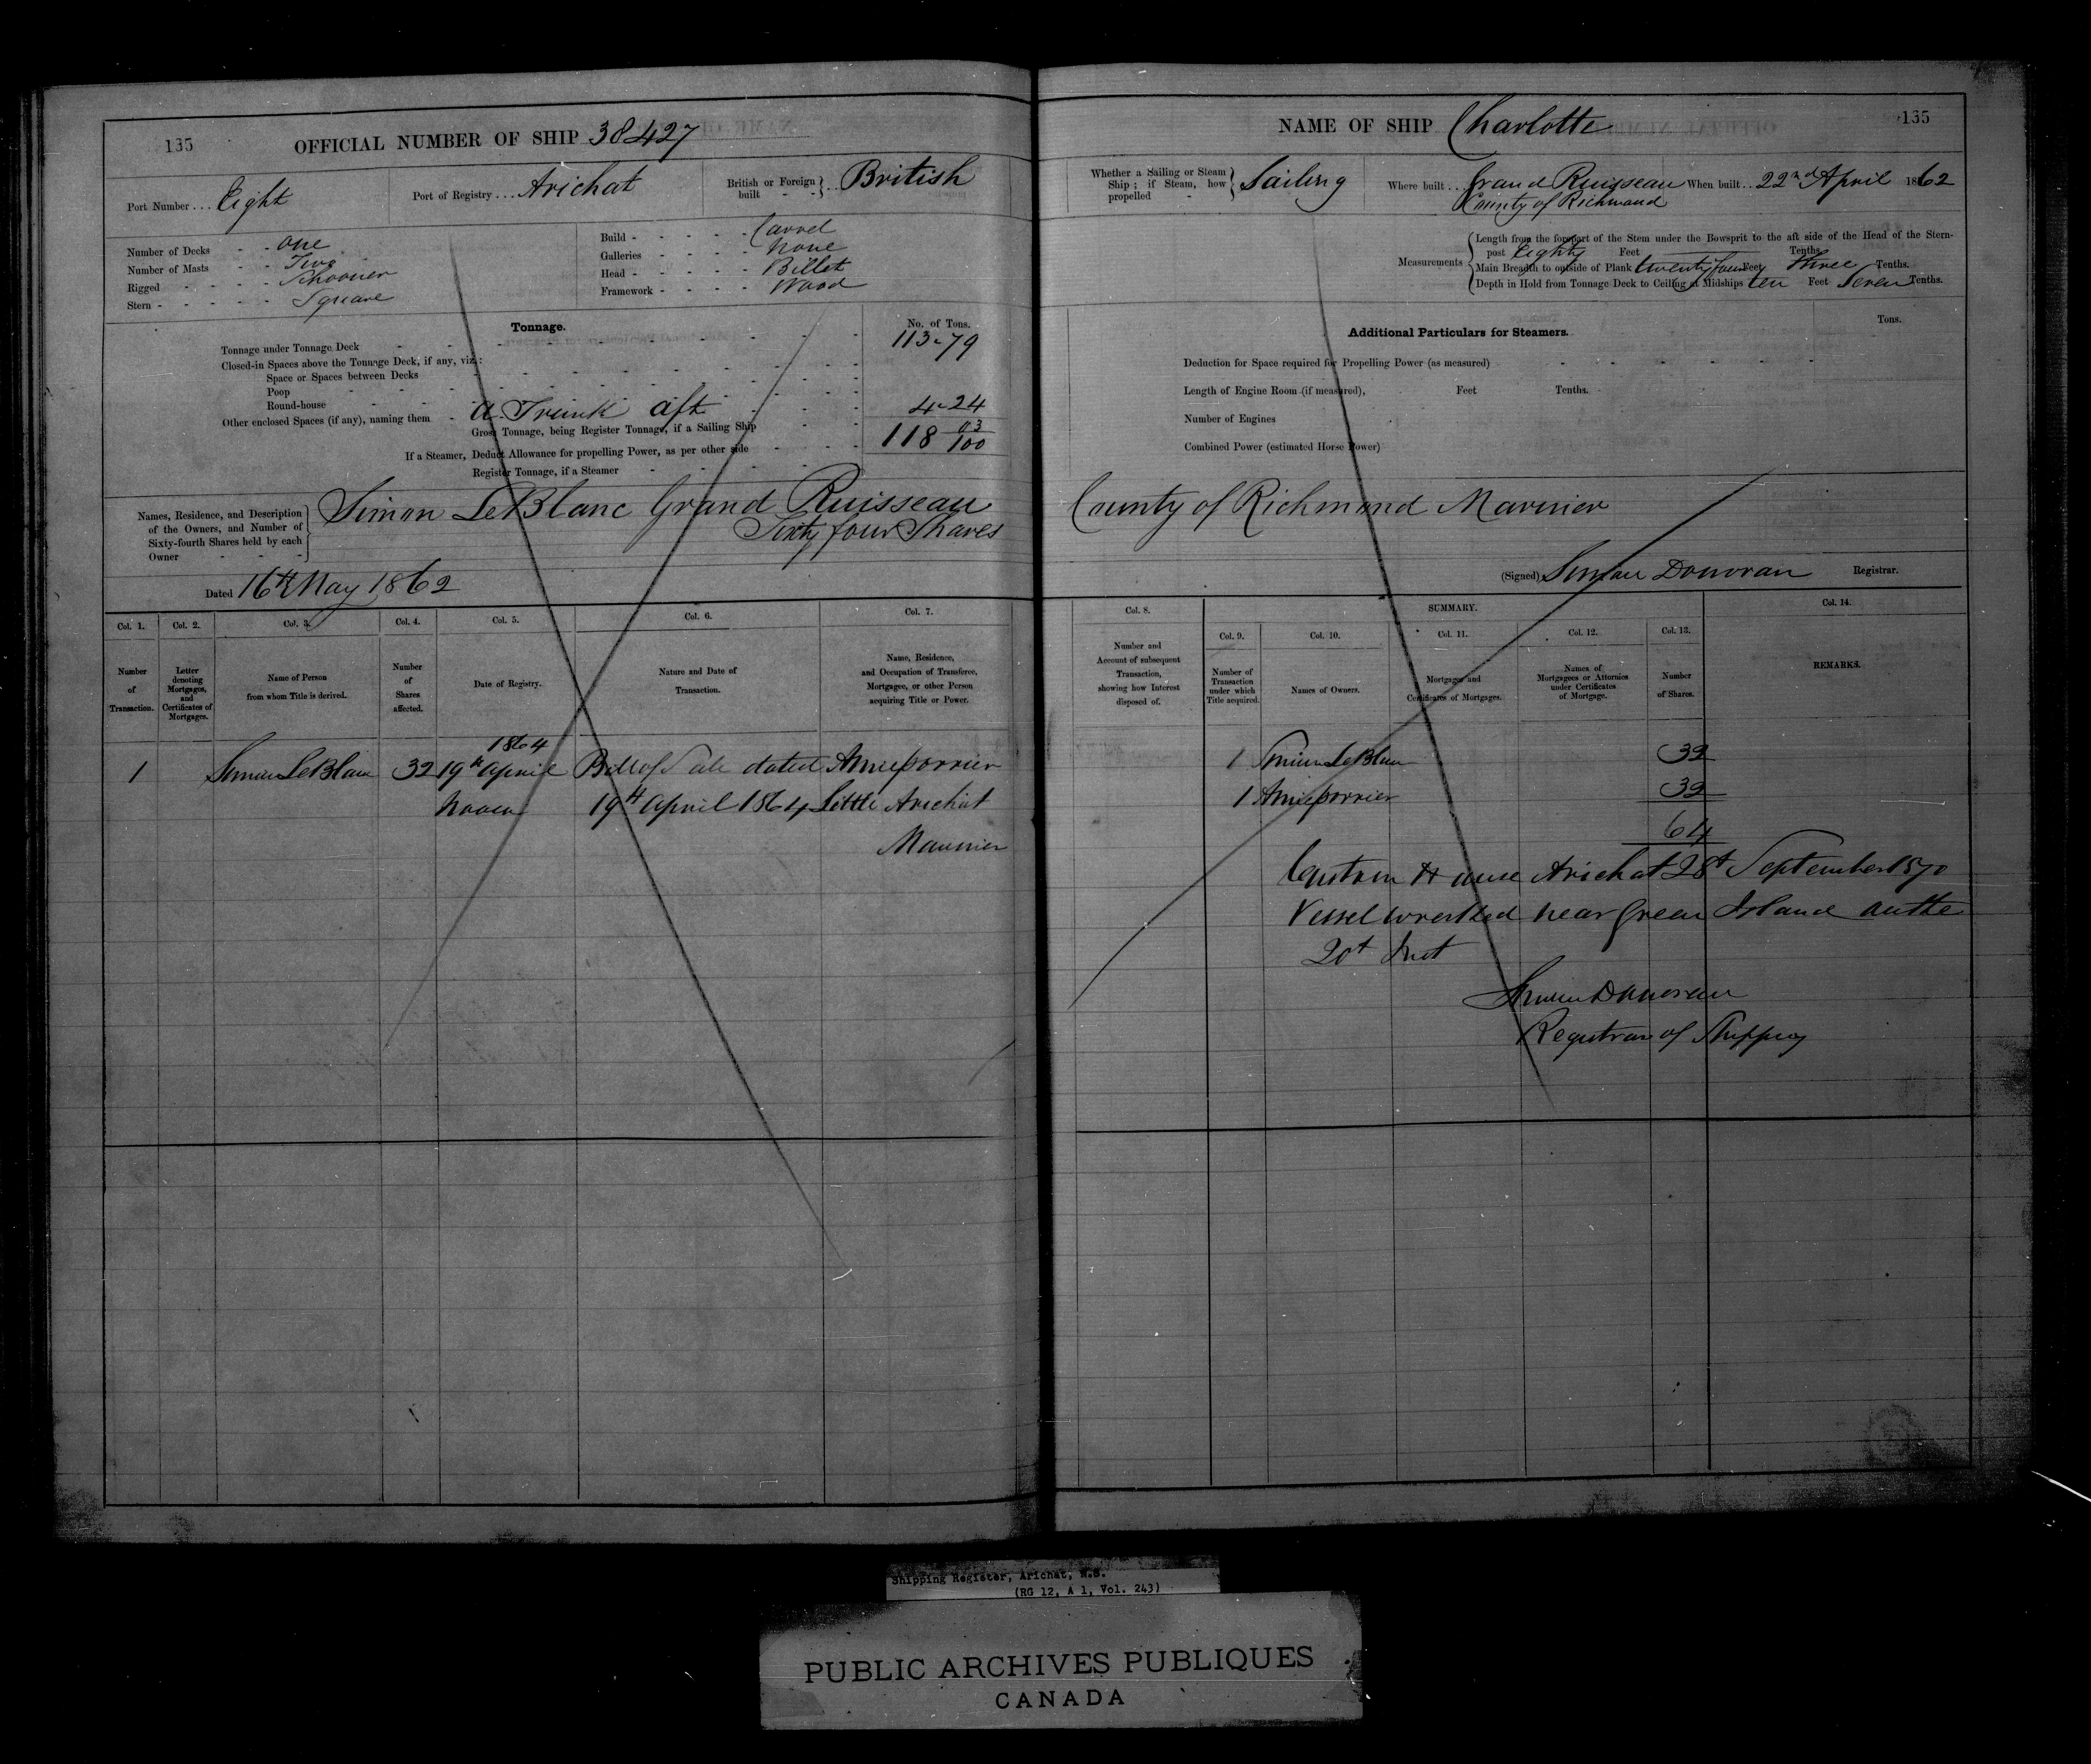 135
OFFICIAL NUMBER OF SHIP 38427
Port Number . . . Eight
Port of Registry . . . Arichat
British or Foreign built - - } . . British
Number of Decks - - one
Number of Masts - - Two
Rigged - - - - - Schooner
Stern - - - - - - Square
Build - - - - - Carvel
Galleries - - - - none
Head - - - - - Billet
Framework - - - - Wood
Tonnage.
No. of Tons.
Tonnage under Tonnage Deck 113-79
Closed-in Spaces above the Tonnage Deck, if any, viz.:
Space or Spaces between Decks
Poop
Round-house
Other enclosed Spaces (if any), naming them - a Trunk aft 4-24
Gross Tonnage, being Register Tonnage, if a Sailing Ship 118 03/100
If a Steamer, Deduct Allowance for propelling Power, as per other side
Register Tonnage, if a Steamer
Names, Residence, and Description of the Owners, and Number of Sixty-fourth Shares held by each Owner
Simon LeBlanc Grand Ruisseau
Sixty four Shares
Dated 16th May 1862
Col. 1. Col. 2. Col. 3. Col. 4. Col. 5. Col. 6. Col. 7.
Number of Transaction.
Letter denoting Mortgages, and Certificates of Mortgages.
Name of Person from whom Title is derived.
Number of Shares affected.
Date of Registry.
Nature and Date of Transaction.
Name, Residence, and Occupation of Transferee, Mortgagee, or other Person acquiring Title or Power.
1864
1 Simon LeBlanc 32 19th April Bill of Sale dated
19th April 1864 Little Arichat
Marinier
NAME OF SHIP Charlotte
135
Whether a Sailing or Steam Ship ; if Steam, how propelled - } Sailing
Where built . . Grand Ruisseau
County of Richmond
When built . . 22nd April 1862
Measurements
Length from the forepart of the Stem under the Bowsprit to the aft side of the Head of the Stern-
post Eighty Feet Tenths.
Main Breadth to outside of Plank twenty four Feet three Tenths.
Depth in Hold from Tonnage Deck to Ceiling at Midships ten Feet Seven Tenths.
Additional Particulars for Steamers.
Tons.
Deduction for Space required for Propelling Power (as measured)
Length of Engine Room (if measured), Feet Tenths.
Number of Engines
Combined Power (estimated Horse Power)
County of Richmond Marinier
(Signed) Simon Donovan Registrar.
Col. 8. SUMMARY. Col. 14.
Col. 9. Col. 10. Col. 11. Col. 12. Col. 13.
Number and Account of subsequent Transaction, showing how Interest disposed of.
Number of Transaction under which Title acquired.
Names of Owners.
Mortgages and Certificates of Mortgages.
Names of Mortgagees or Attornies under Certificates of Mortgage.
Number of Shares.
REMARKS.
1 Simon LeBlanc 32
1 32
64
Custom House Arichat 28t September 1870
Vessel wrecked near Green Island on the
20t Inst
Simon Donovan
Registrar of Shipping
Shipping Register, Arichat, N.S.
(RG 12, A 1, Vol. 243)
PUBLIC ARCHIVES PUBLIQUES
CANADA